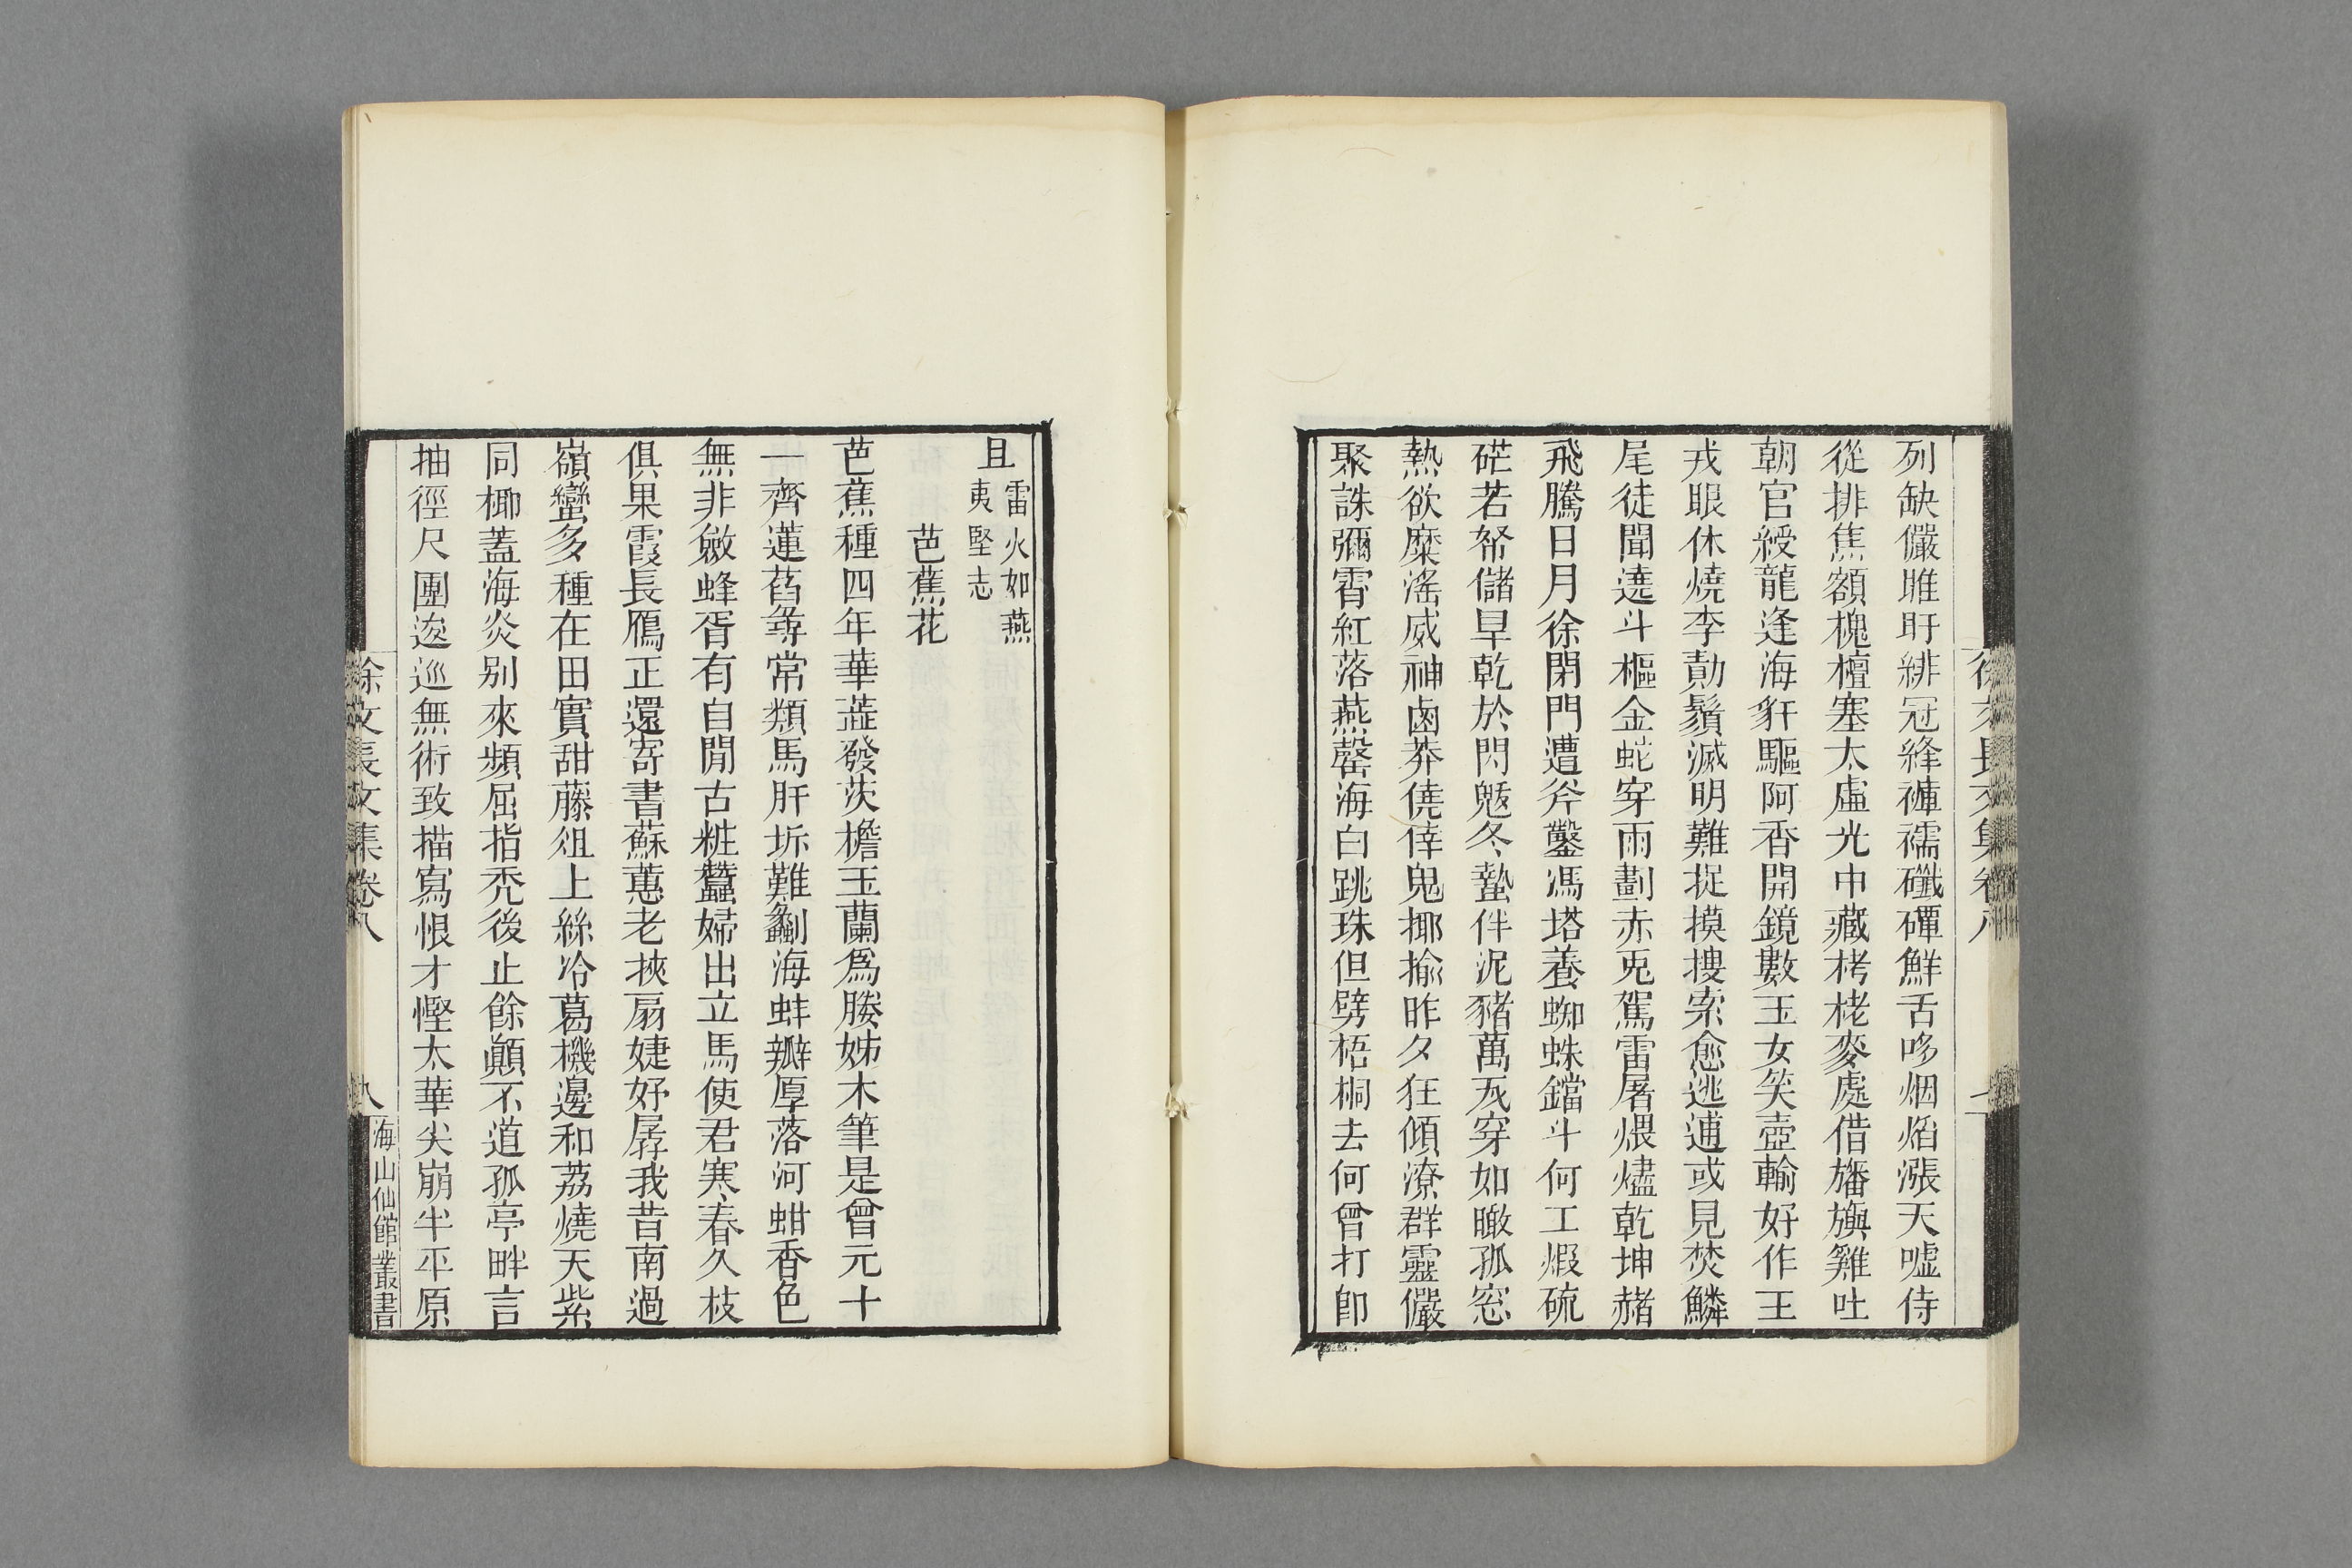 列缺儼雎盱緋冠絳褲襦礮磹鮮舌哆烟焰漲天噓侍
從排焦額槐檀塞太虛光中藏栲栳麥處借旛旟雞吐
朝官綬龍逢海豻驅阿香開鏡數玉女笑壺輸好作王
戎眼休燒李勣鬚滅明難捉摸捜索愈逃逋或見焚鱗
尾徒聞遶斗樞金蛇穿雨劃赤兎駕雷屠煨燼乾坤赭
飛騰日月徐閉門遭斧鑿馮塔養蜘蛛鐺斗何工煆硫
硭若帑儲旱乾於閃魃冬蟄伴泥豬萬瓦穿如瞰孤窓
熱欲糜滛威神鹵莽僥倖鬼揶揄昨夕狂傾潦群靈儼
聚誅彌霄紅落燕罄海白跳珠但劈梧桐去何曾打卽
且 雷火如燕
夷堅志
芭蕉花
芭蕉種四年華蘂發茨檐玉蘭爲媵姊木筆是曾元十
一齊蓮萏尋常類馬肝坼難劙海蚌瓣厚落河蚶香色
無非斂蜂胥有自閒古粧蠶婦出立馬使君寒春久枝
俱果霞長鴈正還寄書蘇蕙老挾扇婕妤孱我昔南過
嶺蠻多種在田實甜藤俎上絲冷葛機邊和荔燒天紫
同榔蓋海炎别來頻屈指禿後止餘顚不道孤亭畔言
抽徑尺團逡巡無術致描寫恨才慳太華尖崩半平原
徐文長文集卷八
八
海山仙館叢書